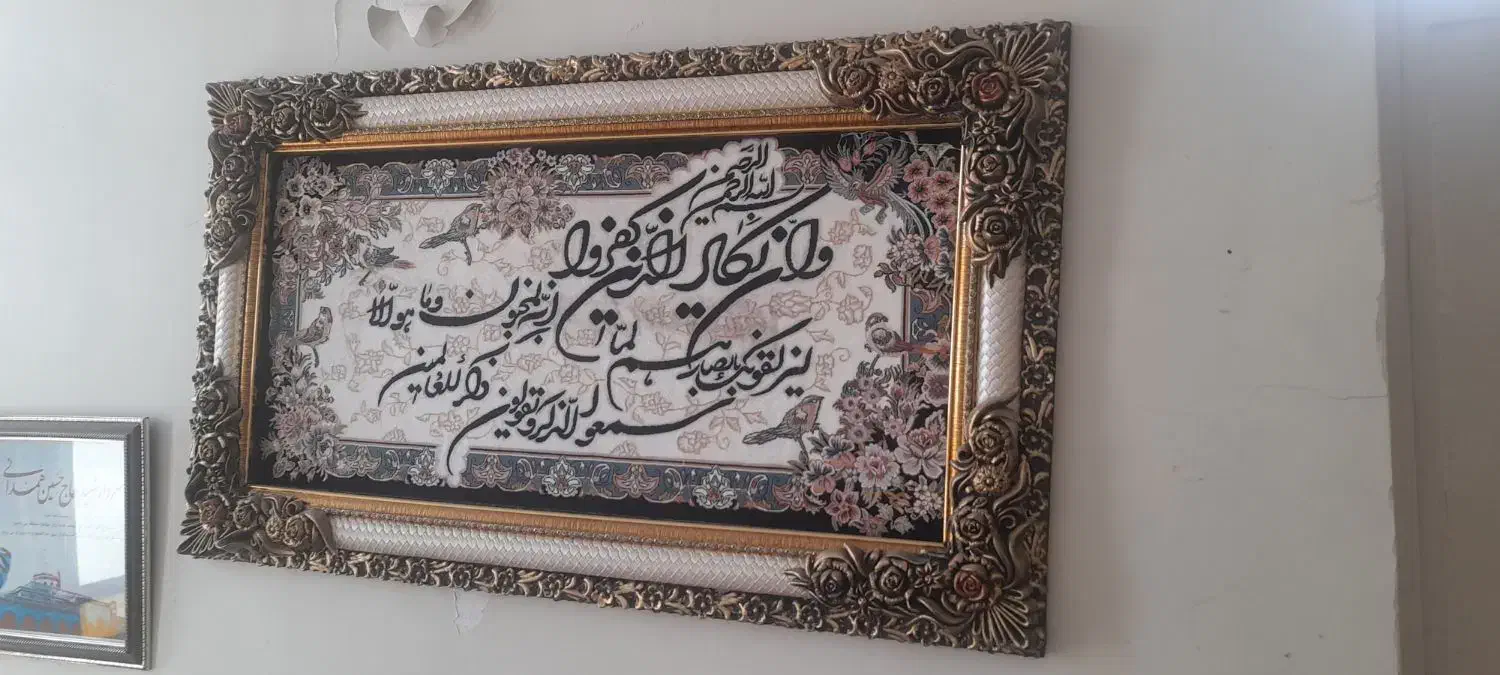 بسم الله الرحمن الرحیم
وان یکاد الذین کفروا
لیزلقونک بابصارهم لما
سمعوا الذکر و یقولون
انه لمجنون وما هو الا
ذکر للعالمین
حاج حسین همدانی